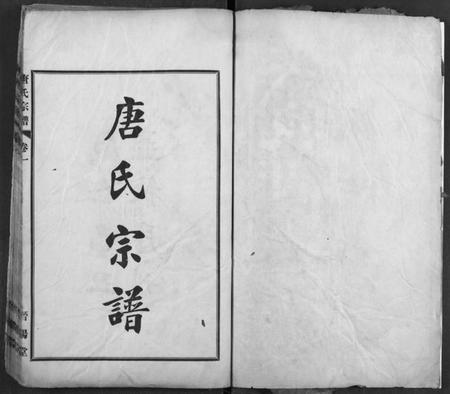 唐氏宗譜
唐氏宗譜 卷一